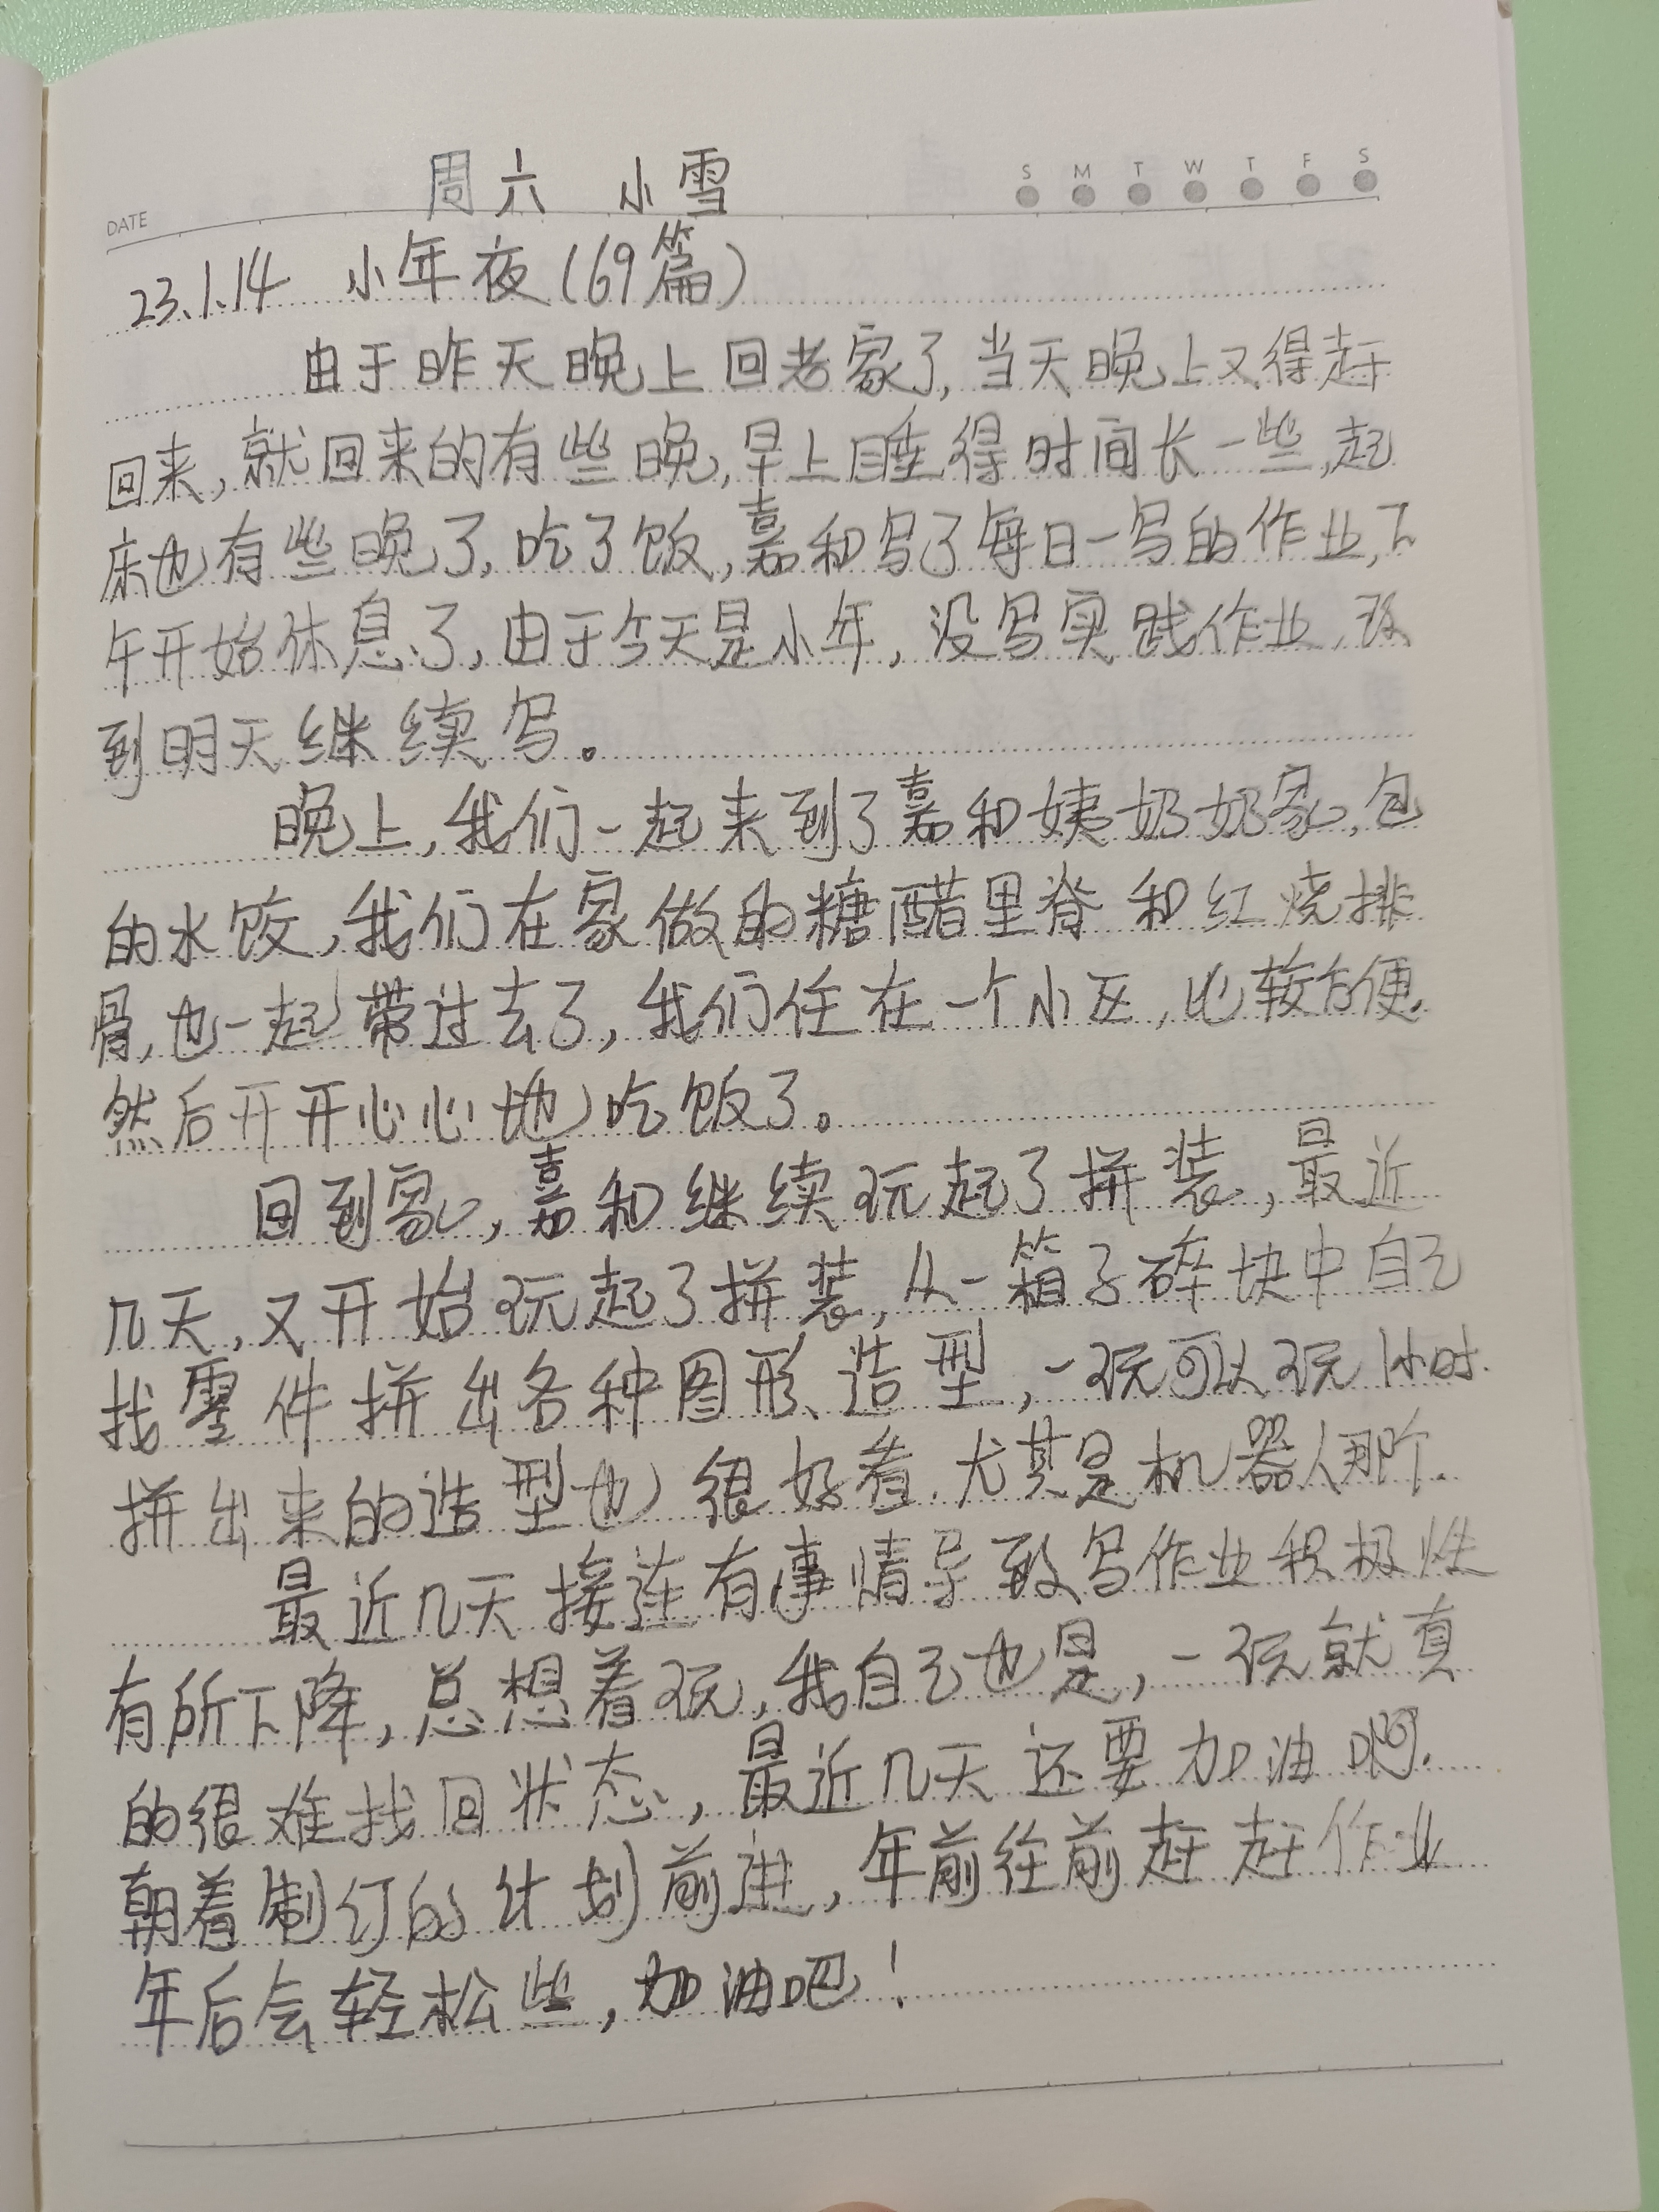 周六 小雪
S M T W T F S
DATE
23.1.14 小年夜(69篇)
由于昨天晚上回老家了,当天晚上又得赶
回来,就回来的有些晚,早上睡得时间长一些,起
床也有些晚了,吃了饭,嘉和写了每日一写的作业,下
午开始休息了,由于今天是小年,没写实践作业,
到明天继续写。
晚上,我们一起来到了嘉和姨奶奶家,包
的水饺,我们在家做的糖醋里脊和红烧排
骨,也一起带过去了,我们住在一个小区,比较方便,
然后开开心心地吃饭了。
回到家,嘉和继续玩起了拼装,最近
几天,又开始玩起了拼装,从一箱子碎块中自己
找零件拼出各种图形、造型,一玩可以玩1小时.
拼出来的造型也很好看,尤其是机器人那个.
最近几天接连有事情导致写作业积极性
有所下降,总想着玩,我自己也是,一玩就真
的很难找回状态,最近几天还要加油啊.
朝着制订的计划前进,年前往前赶赶作业
年后会轻松些,加油吧!